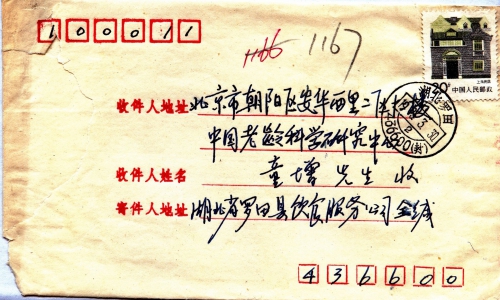 100011
1166 1167
20分
上海民居
中国人民邮政
湖北罗田
收件人地址 北京市朝阳区安华西里二区
中国老龄科学研究中心
收件人姓名 童增 先生 收
寄件人地址 湖北省罗田县饮食服务公司 金
436600